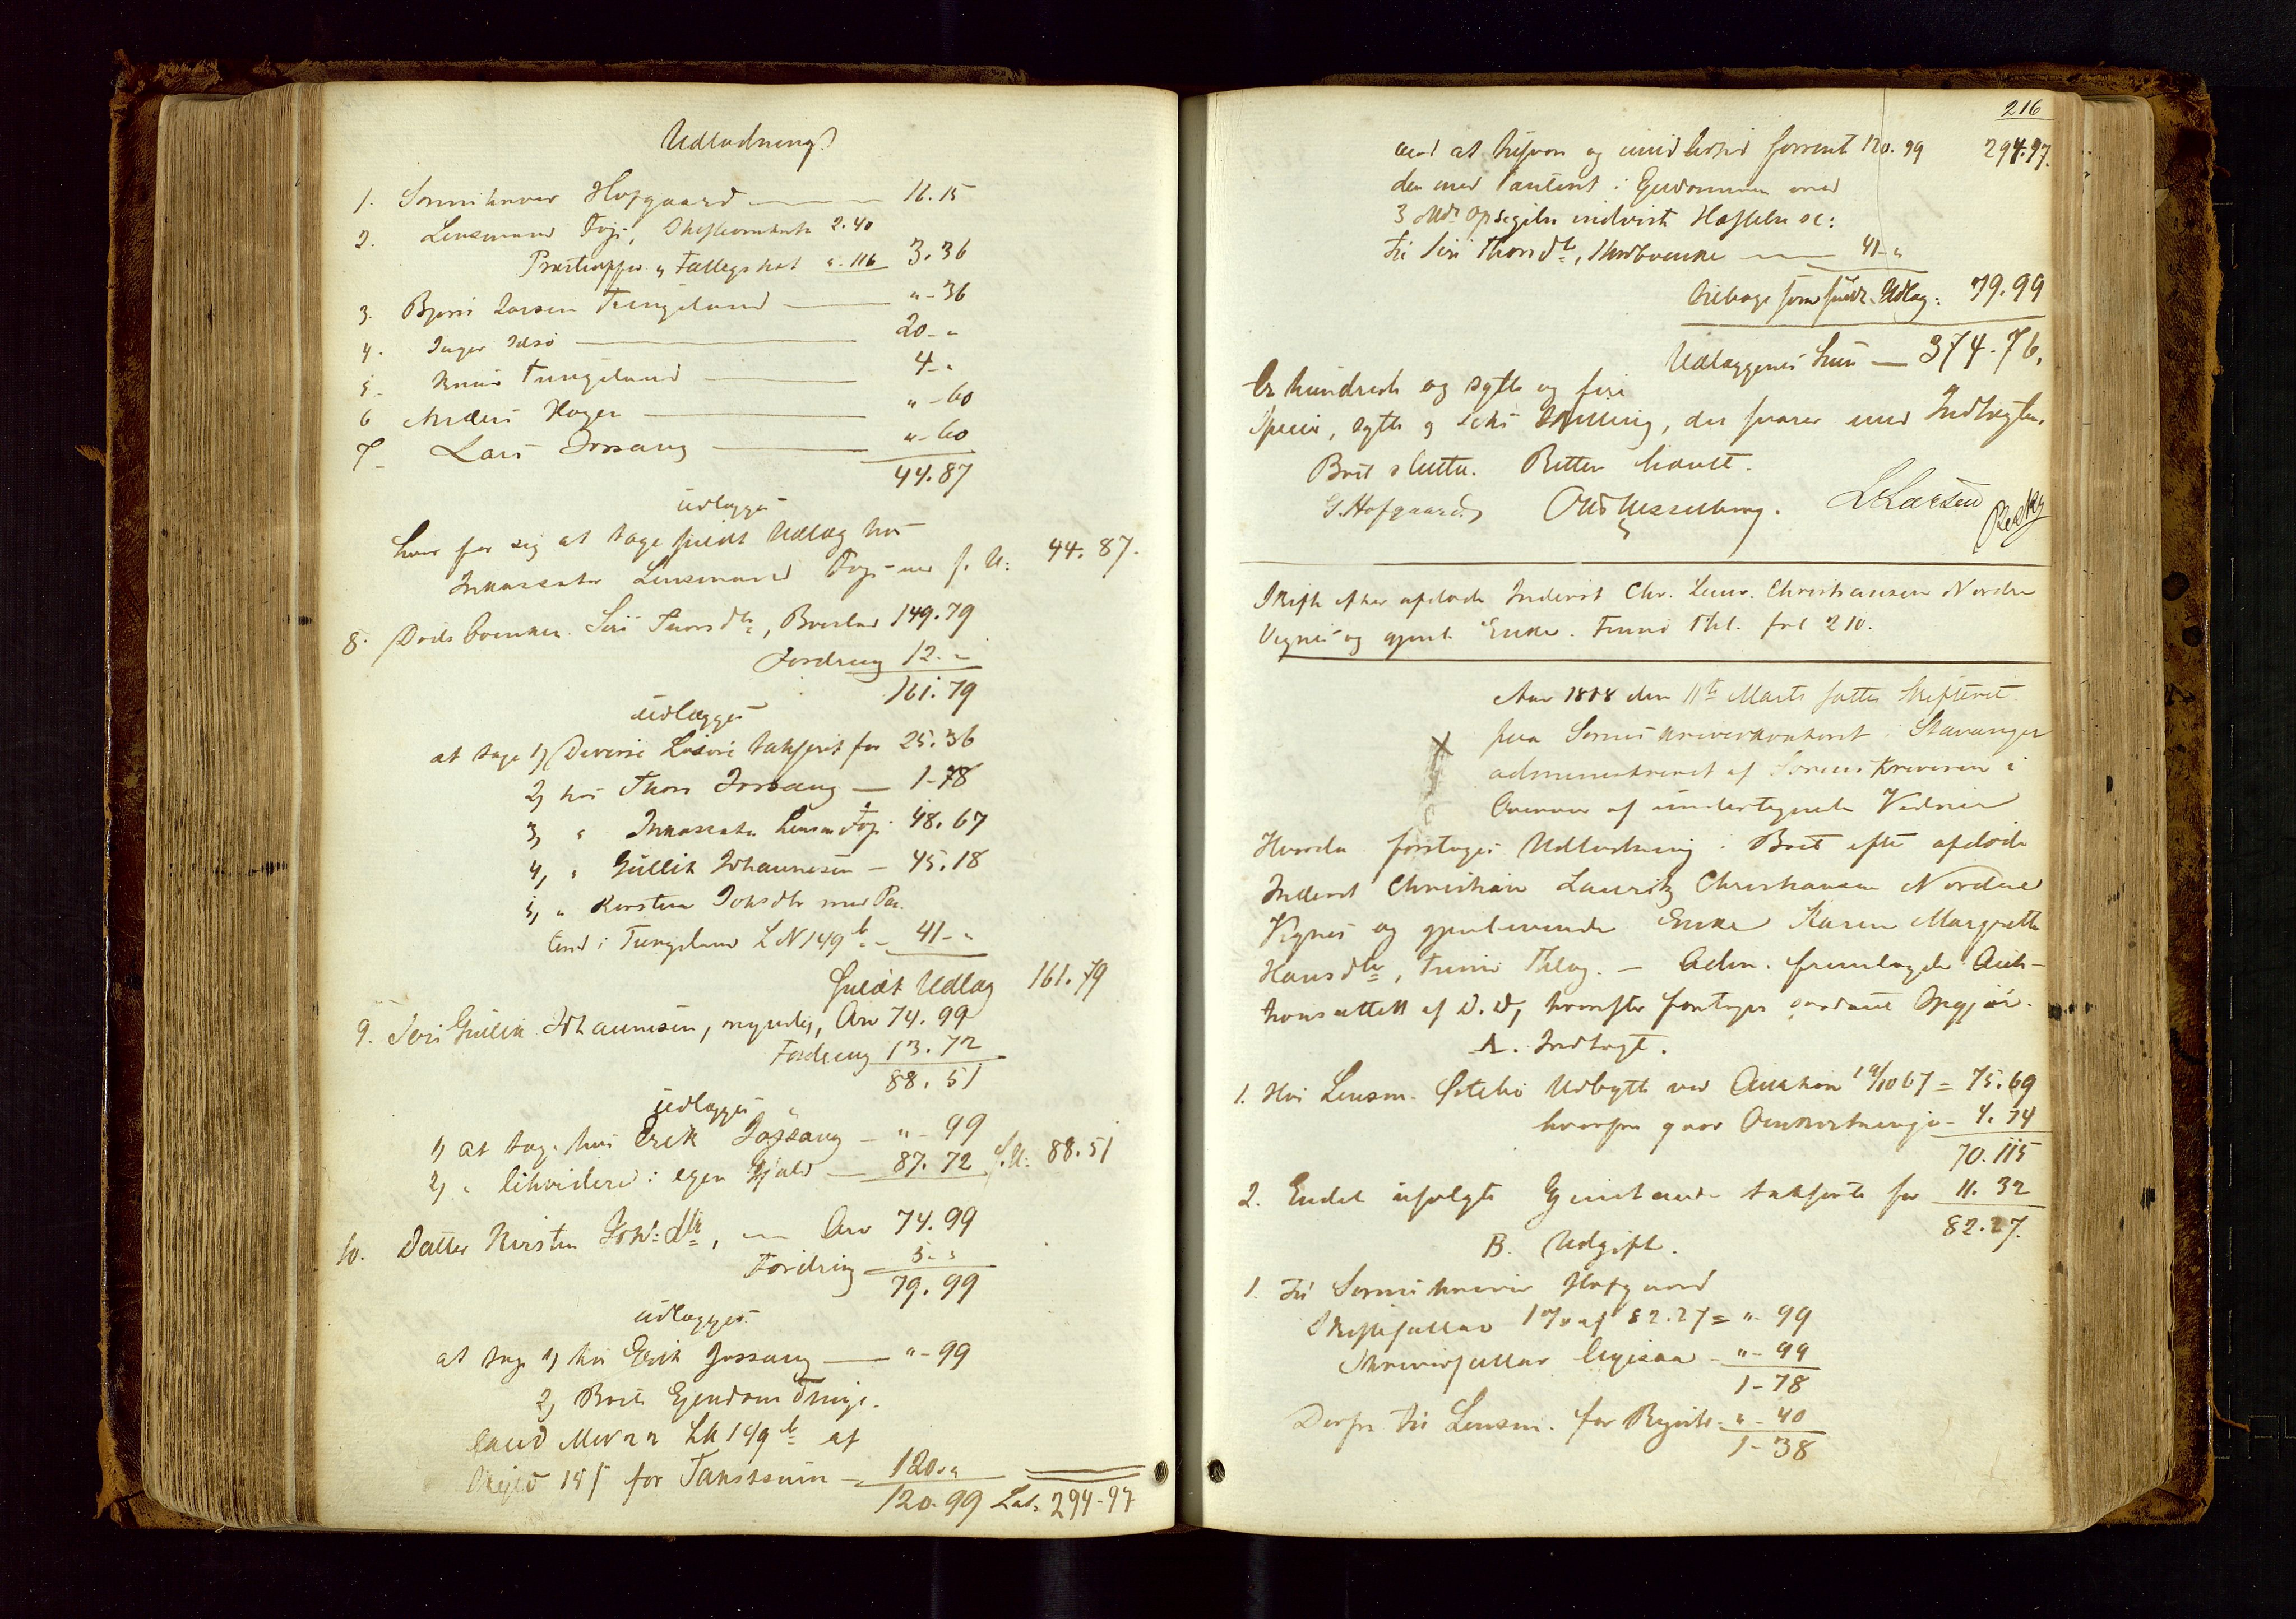 Udlodning
1. Sorenskriver Hofgaard — 16.15
2. Lensmand Foys, Skifteomkostn 2.40
Præsteoffer & Fattigskat ". 116 3.36
3. Bjørn Larsen Tungeland — "-36
4. Inger Idsø — 20-"
5. Knud Tungeland — 4-"
6 Anders Hagen — "-60
7. Lars Jossang — "-60
44.87
udlægges
hver for sig at tage fuldt Udlæg hos
Inkassator Lensmand Foys med f. U: 44.87.
8. Døds Boenken Siri Thorsdtr, Boeslod 149.79
Fordring 12.-
161.79
udlægges
at tage 1) Diverse Løsøre taxeret for 25.36
2) hos Thore Jossang — 1-78
3) " Inkassator Lensm Foys 48.67
4) " Gullik Johannesen — 45.18
5) " Kirsten Johsdtr med Pan
tend i Tungeland L N 149 b — 41-"
fuldt Udlæg 161.79
9. Søn Gullik Johannesen, myndig, Arv 74.99
Fordring 13.72
88.51
udlægges
1) at tage hos Erik Jossang — "-99
2) " likvidere i egen Gjæld — 87.72 f.U: 88.51
10. Datter Kirsten Joh: dtr, — Arv 74.99
Fordring 5-"
79.99
udlægges
at tage 1) hos Erik Jossang — "-99
2) Boets Ejendom Tunge-
land M N 22 L N 149 b af
Skyld for Taxtsum — 120."
120.99 Lat. 294-97
216
mod at hun og forrent 120.99 294.97.
den med Panteret i Ejendommen med
3 Mdr Opsigelse indvist Hæftelse sc:
til Siri Thorsdtr, Skrdboenke — 41-"
tilbage som fuldt Udlæg: 79.99
Udlæggenes Sum — 374-76.
tre hundrede og sytti og fire
Specie, sytti og seks Skilling, der svarer med Indtægten.
Boet sluttet. Retten hævet.
G. Hofgaard L. Larsen Resky
Skifte efter afdøde Inderst Chr. Laur. Christiansen Nordre
Vignes og gjenl. Enke. Finnø Thl. fol 210.
Aar 1868 den 11te Marts sattes Skifteret
paa Sorenskriverkontoret i Stavanger
administreret af Sorenskriveren i
Overvær af undertegnede Vidner
Hvorda foretoges Udlodning i Boet efter afdøde
Inderst Christian Lauritz Christiansen Nordre
Vignes og gjenlevende Enke Karen Margrethe
Hansdtr, Finnø Thlag. — Adm. fremlagde Auk-
tionsattest af D.D, hvorefter foretoges saadant Opgjør.
A. Indtægt.
1. Hos Lensm. Udbytte ved Auktion 19/10 67 = 75.69
hvorfra gaar Omkostninger — 4.74
70.115
2. Endel usolgte Gjenstande taxerte for 11.32
82.27.
B. Udgift.
1. Til Sorenskriver Hofgaard
Skiftesallær 1 % af 82.27 = "-99
Skriversallær ligesaa — "-99
1-78
Derfra til Lensm. for Registr. "-40
1-38